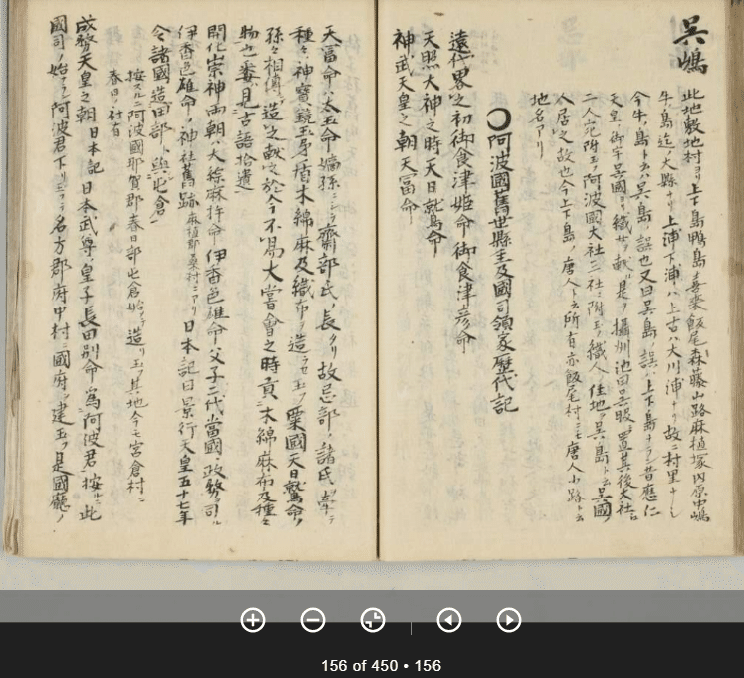 呉嶋
此地敷地村ヨリ上下島鴨島喜来飯尾森藤山路麻植塚内原中嶋
牛島迄ノ大縣ナリ上浦下浦ハ上古ハ大川浦ナリ故ニ村里ナシ
今牛島トハ呉島ノ誤也又曰呉島ノ誤ハ上下島ナラン昔應仁
天皇ノ御宇呉國ヨリ織女ヲ献ス是ヲ攝州池田呉服ニ置其後大社ニ
二人宛附玉フ阿波國大社三社ニ附玉フ織人ノ住地ヲ呉島ト云呉國ノ
人居之故也今上下島ノ唐人ト云所有亦飯尾村ニモ唐人小路ト云
地名アリ
○阿波國舊世縣主及國司領家歴代記
遠代界之初御食津姫命御食津彦命
天照大神之時天日鷲命
神武天皇之朝天富命
天富命ハ太玉命ノ嫡孫ニシテ齋部氏ノ長タリ故忌部ノ諸氏率テ
種々神寶鏡玉矛盾木綿麻及織布ヲ造ラセ玉フ粟國天日鷲命ノ
孫々相傳テ造之献之於今不易大嘗會之時貢ス木綿麻布及種々
物也審ニ見古語拾遺
開化崇神両朝ハ大綜麻杵命伊香色雄命ノ父子二代當國ノ政務ヲ司ル
伊香色雄命ノ神社舊跡麻植郡桑村ニアリ日本記曰景行天皇五十七年
令諸國造田部與屯倉
按スルニ阿波國那賀郡春日部屯倉始テ造リ玉フ其地今モ宮倉村ニ
春日ノ社有
成務天皇之朝日本記日本武尊ノ皇子長田別命為阿波君按ルニ此
國司ノ始ニシテ阿波君下リ玉フテ名方郡府中村ニ國府ヲ建玉フ是國廳ノ
156 of 450 • 156